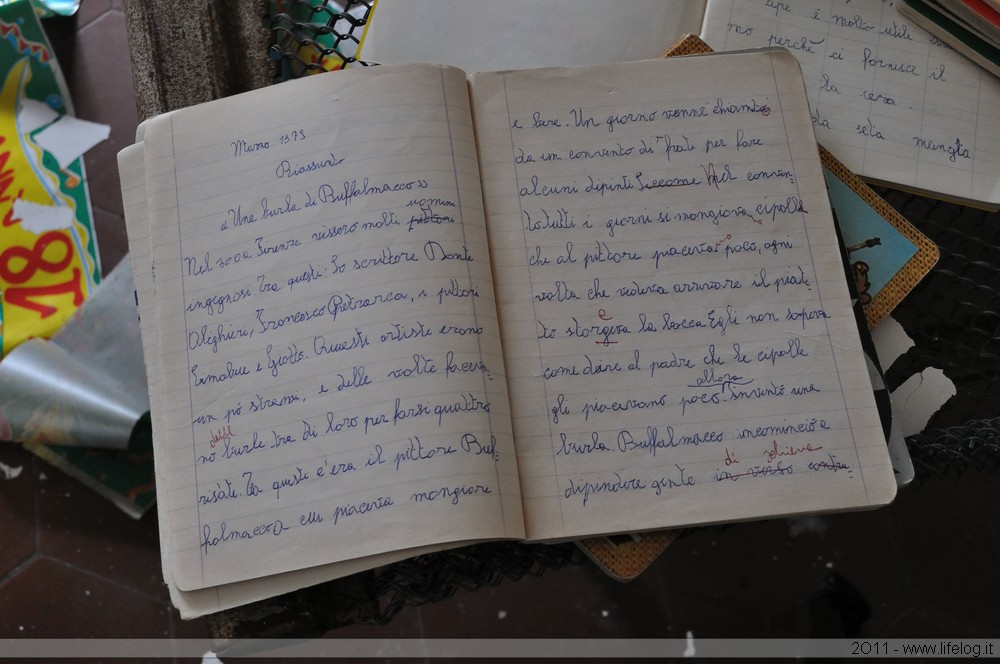 Marzo 1979
Riassunto
"Una burla di Buffalmacco"
Nel 300 a Firenze vissero molti pittori uomini
ingegnosi. Tra questi: Lo scrittore Dante
Alighieri, Francesco Petrarca, i pittori
Cimabue e Giotto. Questi artisti erano
un pò strami, e delle volte faceva-
no delle burle tra di loro per farsi quattro
risate. Tra queste c'era il pittore Buf-
falmacco a cui piaceva mangiare
e bere. Un giorno venne chiamato
da un convento di frati per fare
alcuni dipinti Siccome Nel conven-
to tutti i giorni si mangiava cipolla
che al pittore piaceva poco, ogni
volta che vedeva arrivare il piat-
to storgeva la bocca Egli non sapeva
come dire al padre che le cipolle
gli piacevano poco allora inventò una
burla. Buffalmacco incominciò a
dipindere gente in verso contra- di schiena
ape è molto utile
mo perchè ci fornisce il
la cera.
la seta mangia
18
2011 - www.lifelog.it